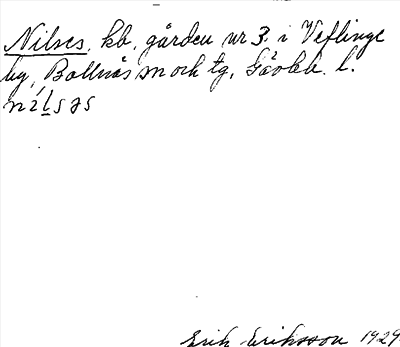 Nilses, kb. gården nr 3. i Veflinge
by, Bollnäs sn och tg, Gävleb. l.
nìlsəs
Erik Eriksson 1929